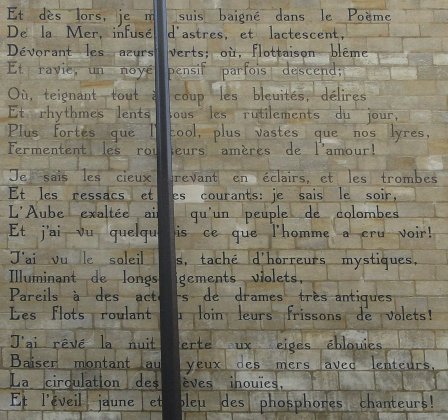 Et dès lors, je suis baigné dans le Poème
De la Mer, infusé d'astres, et lactescent,
Dévorant les azurs verts; où, flottaison blême
Et ravie, un noyé pensif parfois descend;
Où, teignant tout à coup les bleuités, délires
Et rhythmes lents sous les rutilements du jour,
Plus fortes que plus vastes que nos lyres,
Fermentent les rousseurs amères de l'amour!
Je sais les cieux crevant en éclairs, et les trombes
Et les ressacs et les courants: je sais le soir,
L'Aube exaltée qu'un peuple de colombes
Et j'ai vu quelquefois ce que l'homme a cru voir!
J'ai vu le soleil taché d'horreurs mystiques,
Illuminant de longs violets,
Pareils à des acteurs de drames très antiques
Les flots roulant au loin leurs frissons de volets!
J'ai rêvé la nuit verte aux neiges éblouies
Baiser montant aux yeux des mers avec lenteurs,
La circulation des sèves inouïes,
Et l'éveil jaune et bleu des phosphores chanteurs!